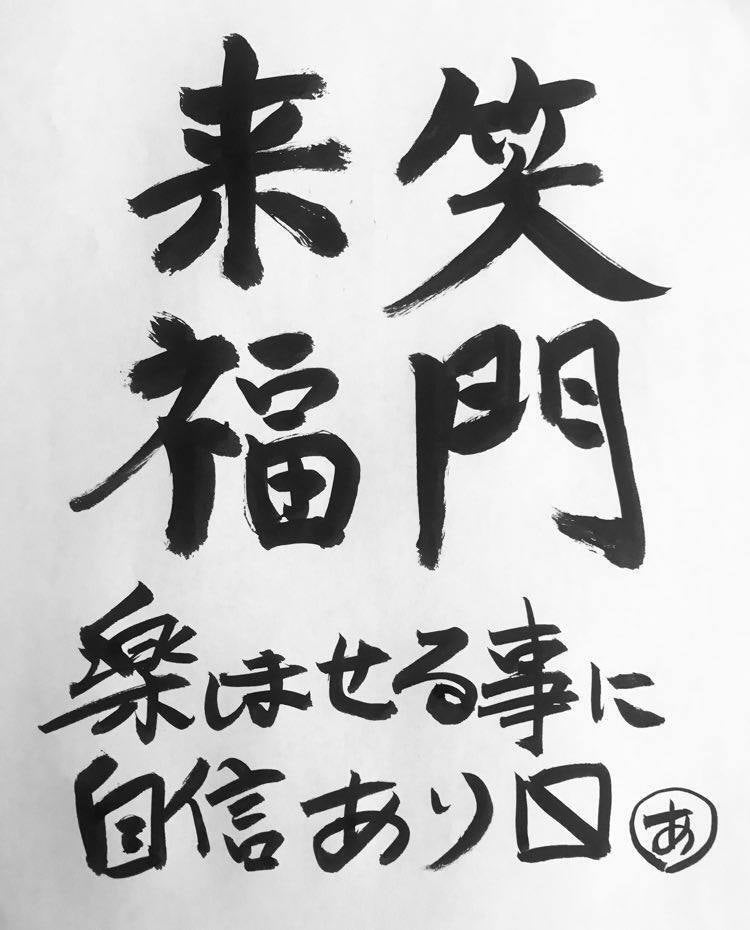 笑門
来福
楽しませる事に
自信あり〼
あ